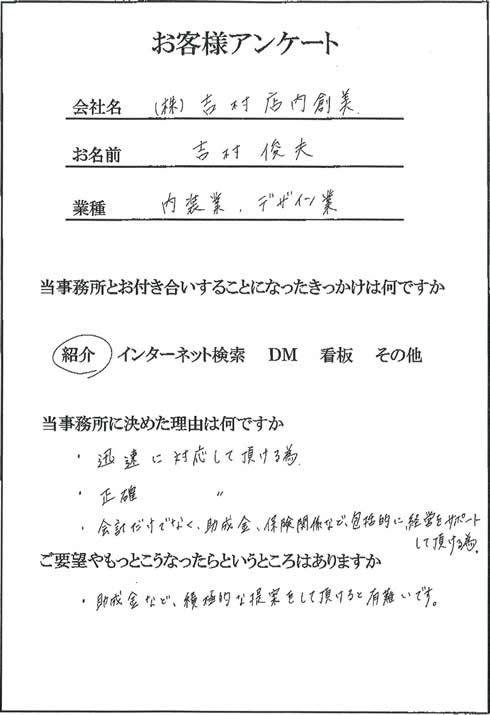 お客様アンケート
会社名 (株)吉村店内創美
お名前 吉村俊夫
業種 内装業、デザイン業
当事務所とお付き合いすることになったきっかけは何ですか
紹介 インターネット検索 DM 看板 その他
当事務所に決めた理由は何ですか
・迅速に対応して頂ける為
・正確 〃
・会計だけでなく、助成金、保険関係など、包括的に経営をサポート
して頂ける為。
ご要望やもっとこうなったらというところはありますか
・助成金など、積極的な提案をして頂けると有難いです。